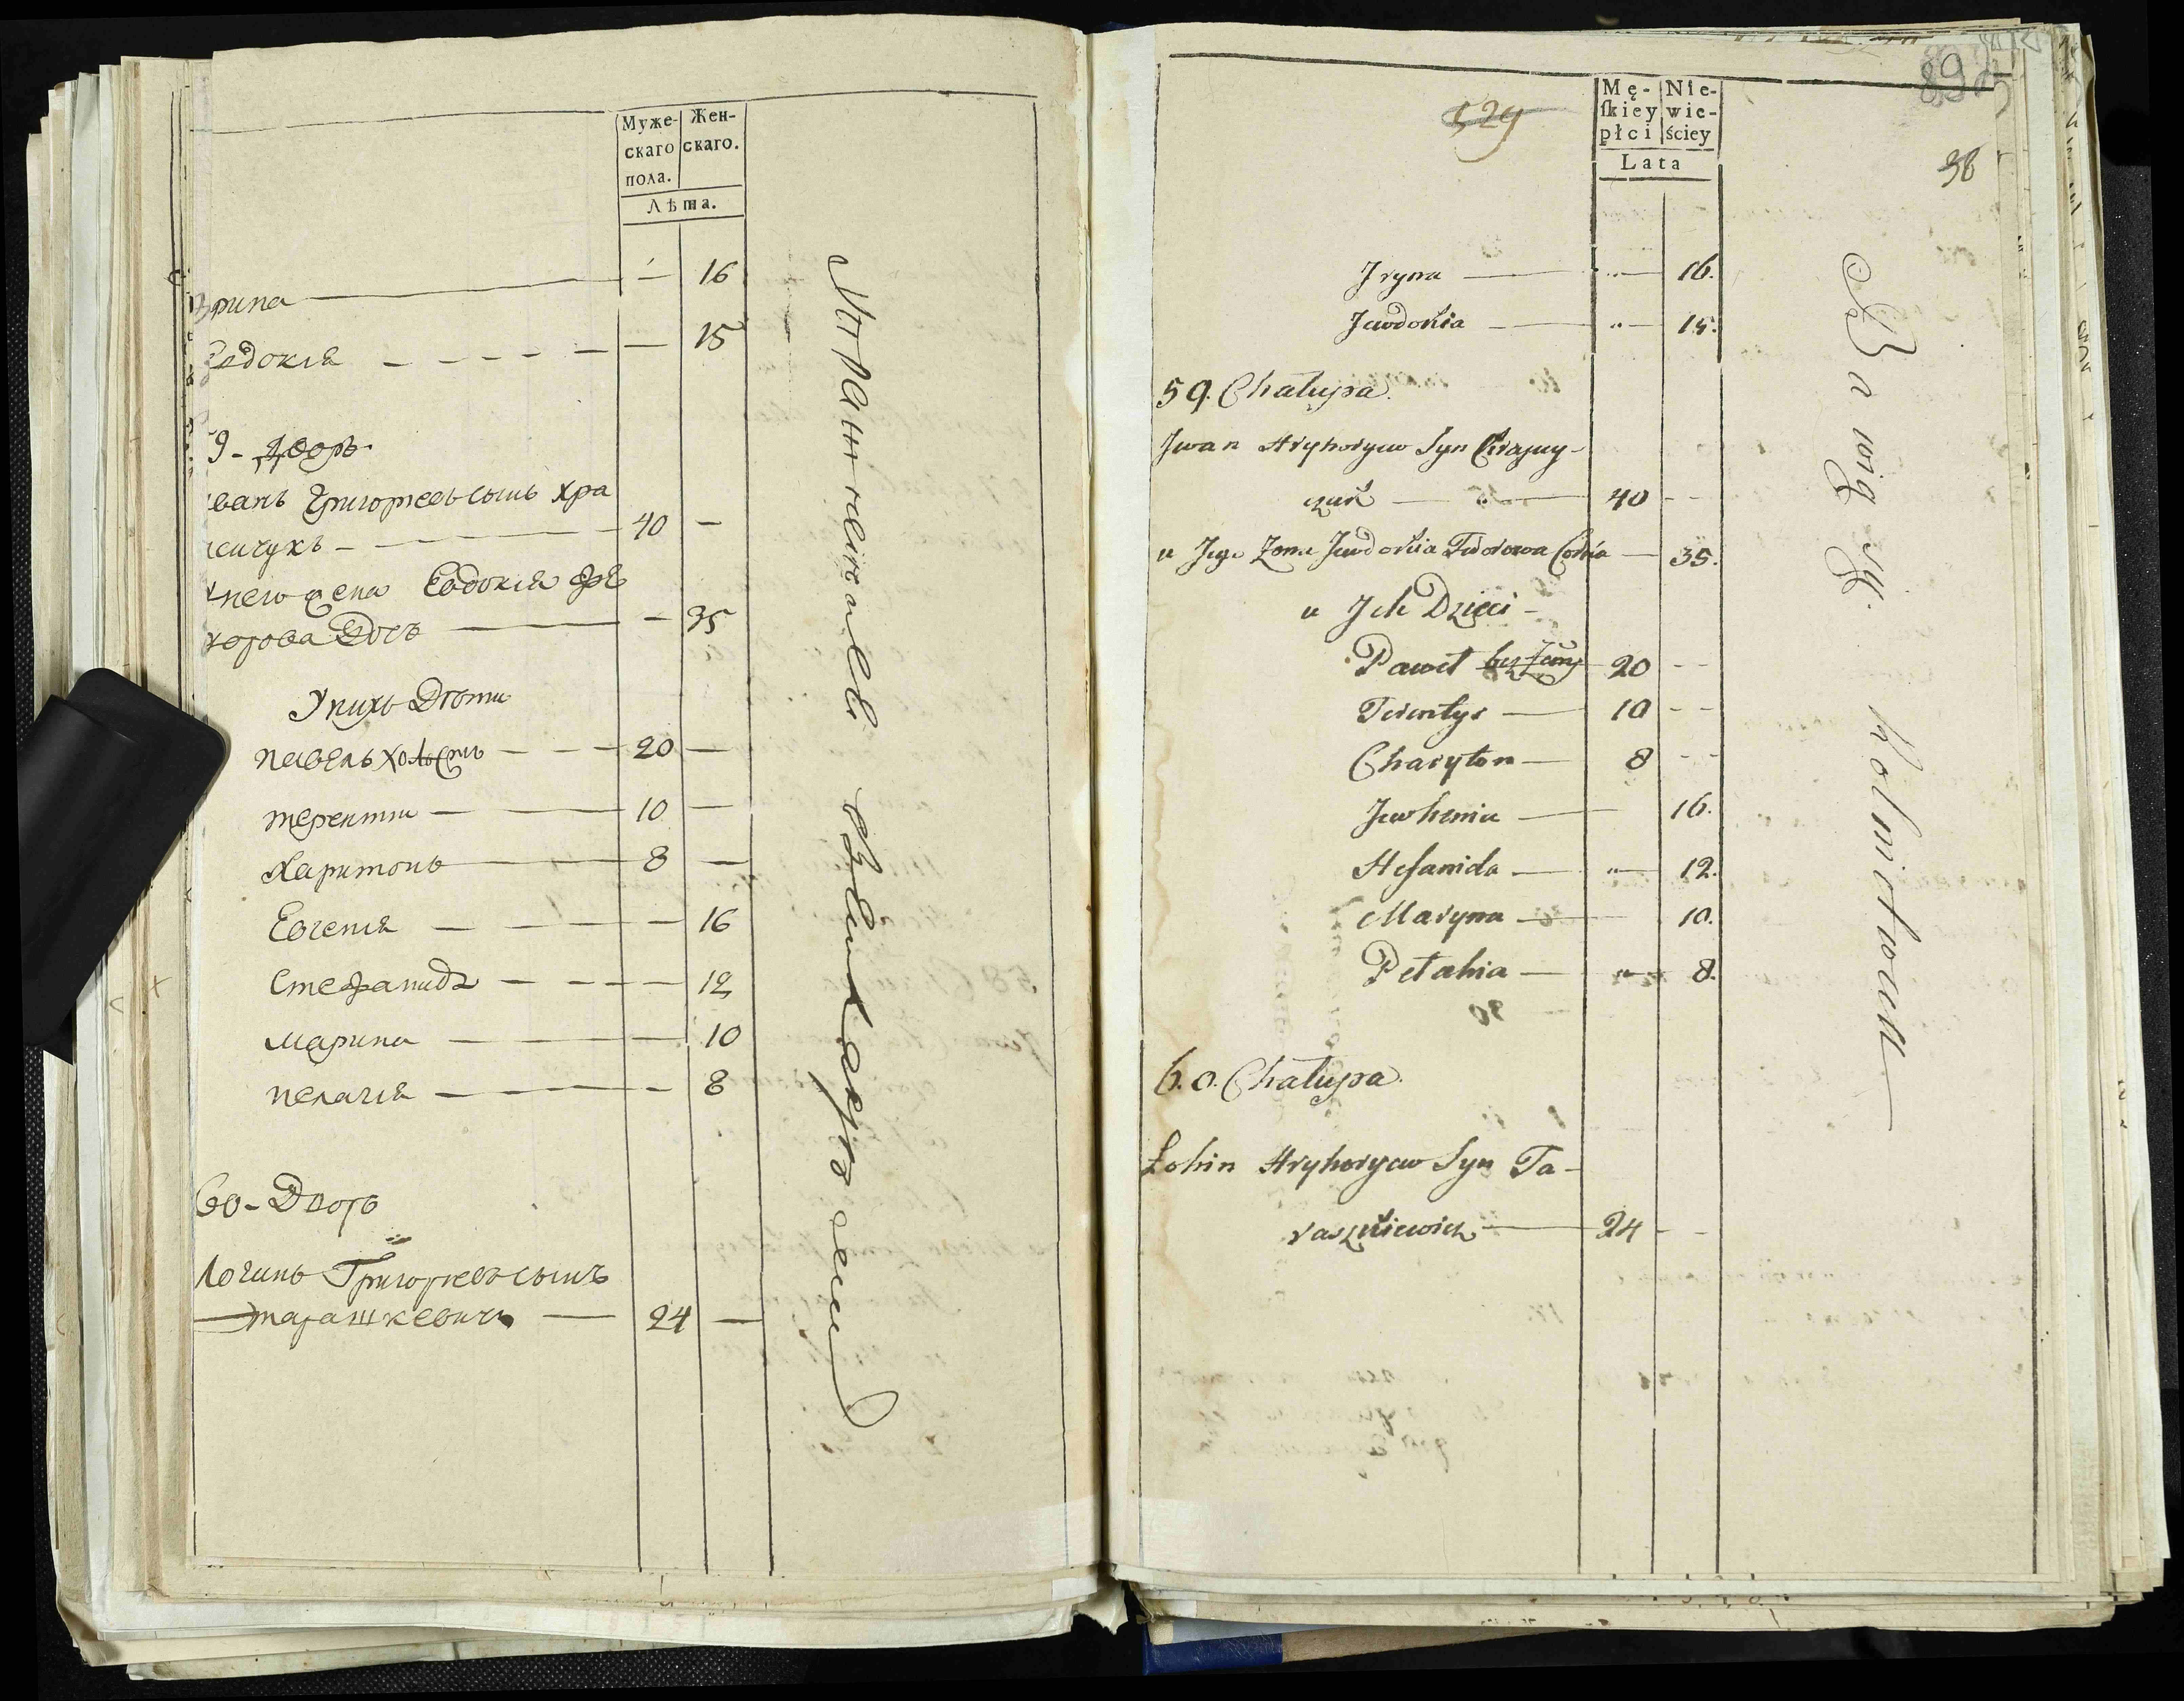 Муже-
скаго
пола.
Жен-
скаго.
Лѣта.
рина — — 16
Евдокия — — 15
9 - дворъ
ванъ Григорьевъ сынъ Хра
сичукъ — 40 —
унего жена Евдокия Фе
дорова Дочь — — 35
Унихъ Дѣти
павелъ холостъ — 20 —
терентии — 10 —
Харитонъ — 8 —
Евгения — — 16
Стефанида — — 12
марина — — 10
пелагия — — 8
60 - Дворъ
Логинъ Григорьевъ сынъ
Тарашкевичъ — 24 —
529
89
38
Mę-
ſkiey
płci
Nie-
wie-
ściey
Lata
Jryna — „ — 16.
Jewdokia — „ — 15.
59. Chałupa.
Jwan Hryhoryew Syn
czuk — 40 - -
u Jego Żona Jewdokia Fedorowa Corka — 35.
u Jch Dzieci -
Paweł bez Żony 20 - -
Terentyi — 10 - -
Charyton — 8 - -
Jewhenia — 16.
Stefanida — „ — 12.
Maryna — 10.
Pełahia — „ — 8.
60. Chałupa.
Łohin Hryhoryew Syn Ta-
raszkiewicz — 24 - -